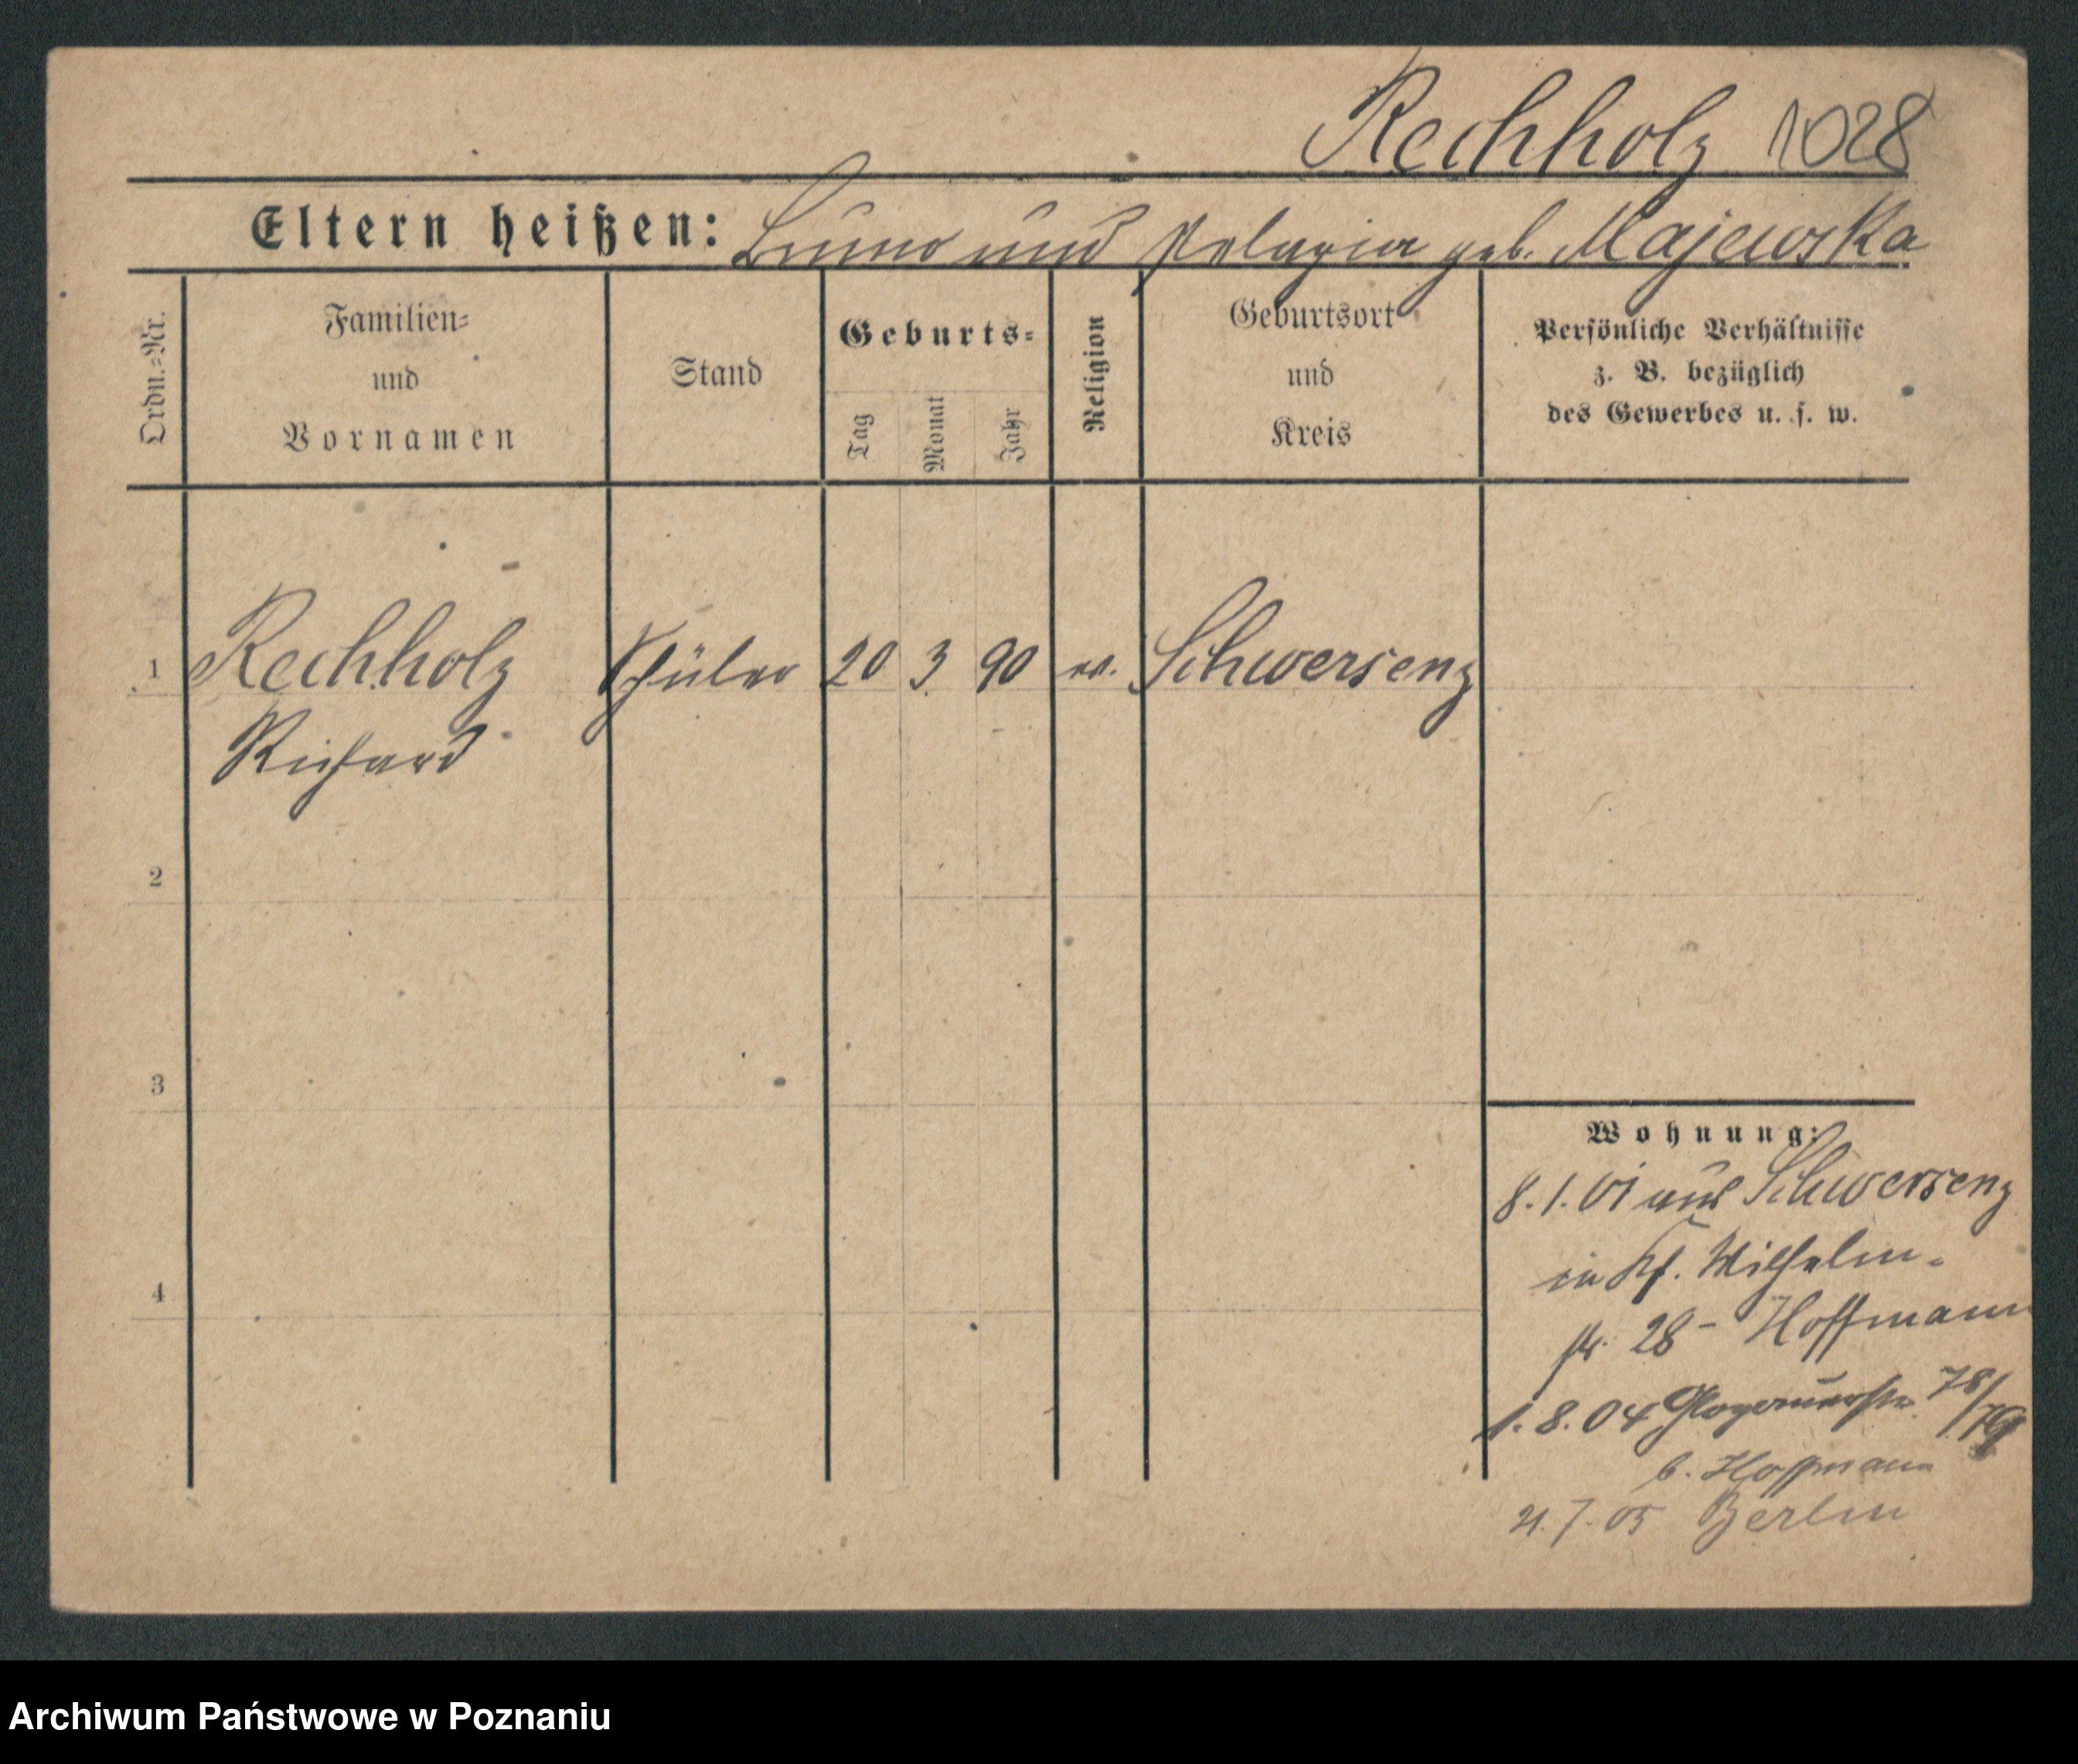 Rechholz 1028
Eltern heißen: Bruno und Pelagia geb. Majewska
Ordn.=Nr.
Familien=
und
Vornamen
Stand
Geburts=
Tag
Monat
Jahr
Religion
Geburtsort
und
Kreis
Persönliche Verhältnisse
z. B. bezüglich
des Gewerbes u. s. w.
1 Rechholz Schüler 20 3. 90 ev. Schwersenz
Richard
2
3
4
Wohnung:
8.1.01 aus Schwersenz
in Wilhelm-
str. 28 - Hoffmann
1.8.04 Glogauerstr. 78/79
b. Hoffmann
21.7.05 Berlin
Archiwum Państwowe w Poznaniu